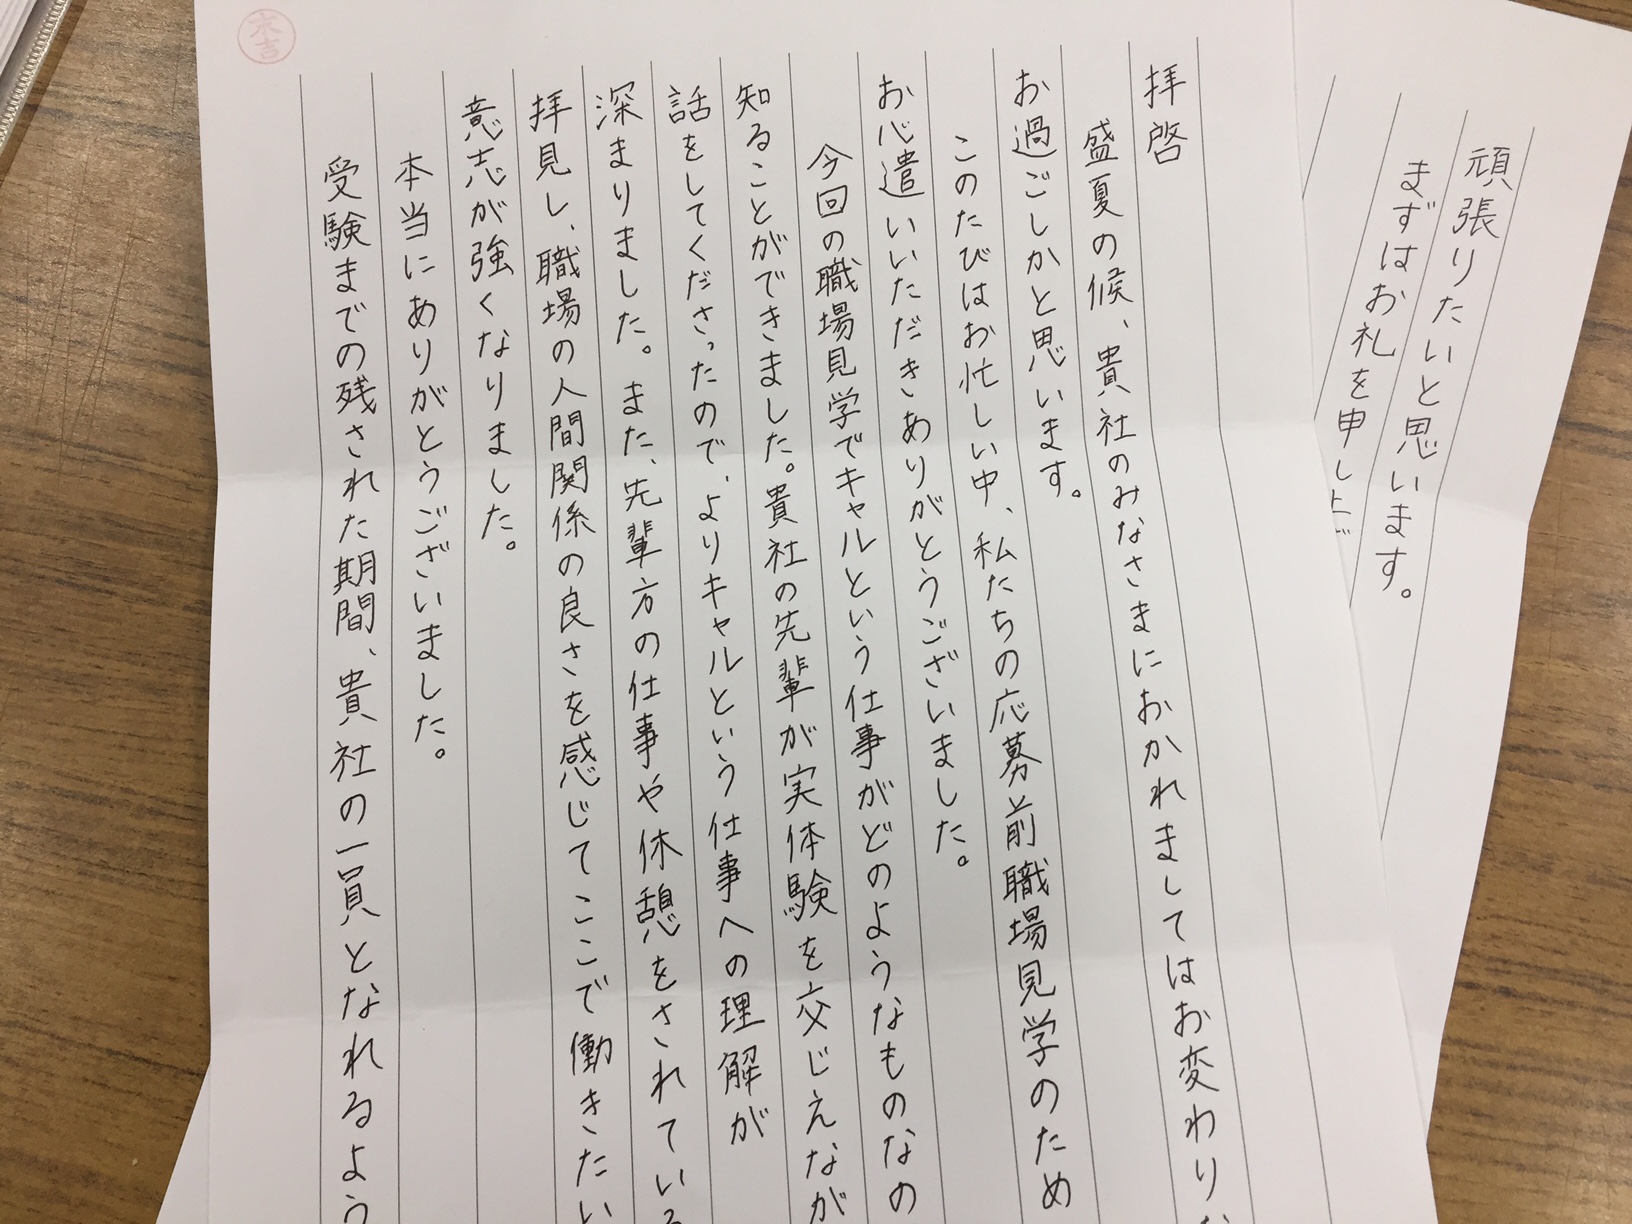 拝啓
盛夏の候、貴社のみなさまにおかれましてはお変わりな
お過ごしかと思います。
このたびはお忙しい中、私たちの応募前職場見学のため
お心遣いいただきありがとうございました。
今回の職場見学でキャルという仕事がどのようなものなの
知ることができました。貴社の先輩が実体験を交じえなが
話をしてくださったので、よりキャルという仕事への理解が
深まりました。また、先輩方の仕事や休憩をされている
拝見し、職場の人間関係の良さを感じてここで働きたい
意志が強くなりました。
本当にありがとうございました。
受験までの残された期間、貴社の一員となれるよう
頑張りたいと思います。
まずはお礼を申し上げ